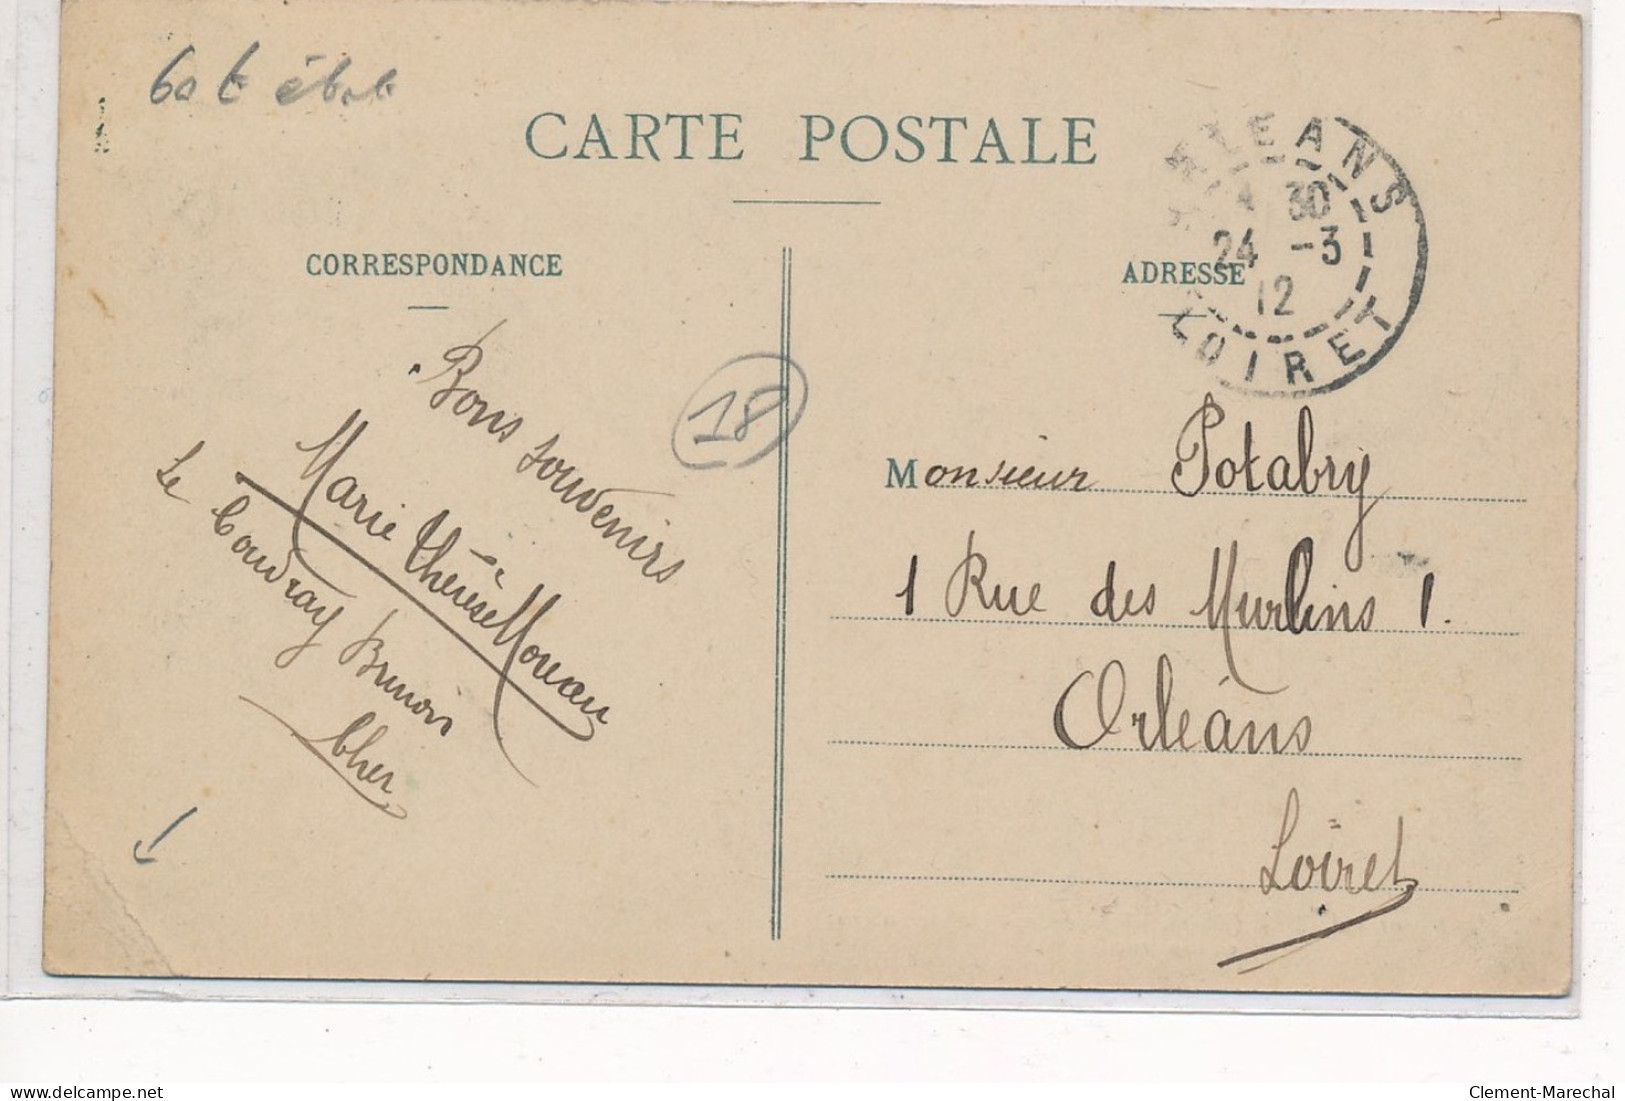 60 t
CARTE POSTALE
ORLEANS
30
24 -3
12
LOIRET
CORRESPONDANCE
ADRESSE
Bons souvenirs
Marie Thérèse Moreau
Le Coudray Brunois
Cher
18
Monsieur Potabry
1 Rue des Murlins 1.
Orléans
Loiret
delcampe.net
Clement-Marechal